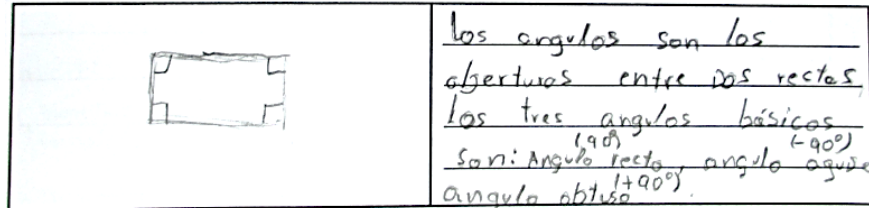 los angulos son los
aberturas entre dos rectas,
los tres angulos básicos
(90°) (-90°)
son: Angulo recto, angulo agudo
angulo obtuso (+90°).